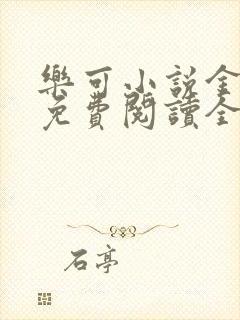 樂可小說全
免費閱讀全
石亭